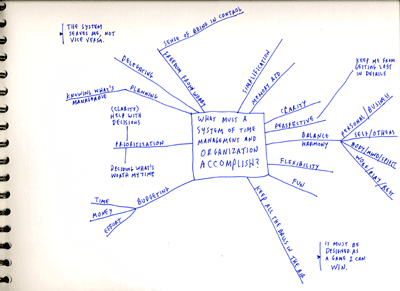 THE SYSTEM
SERVES ME, NOT
VICE VERSA.
SENSE OF BEING IN CONTROL
FREEDOM FROM WORRY
DELEGATING
PLANNING
KNOWING WHAT'S
MANAGEABLE
(CLARITY)
HELP WITH
DECISIONS
PRIORITIZATION
DECIDING WHAT'S
WORTH MY TIME
BUDGETING
TIME
MONEY
EFFORT
WHAT MUST A
SYSTEM OF TIME
MANAGEMENT AND
ORGANIZATION
ACCOMPLISH?
SIMPLIFICATION
MEMORY AID
CLARITY
PERSPECTIVE
KEEP ME FROM
GETTING LOST
IN DETAILS
BALANCE
HARMONY
PERSONAL/BUSINESS
SELF/OTHERS
BODY/MIND/SPIRIT
WORK/PLAY/REST
FLEXIBILITY
FUN
KEEP ALL THE BALLS IN THE AIR
IS MUST BE
DESIGNED AS
A GAME I CAN
WIN.